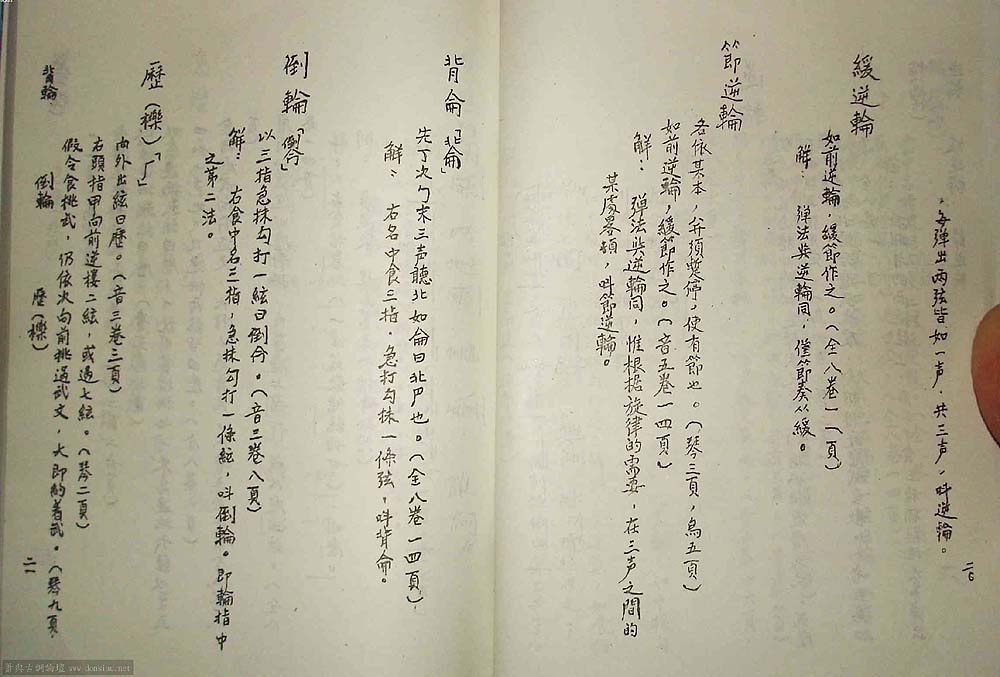 ，每弹出两弦皆如一声．共三声，叫逆輪。
緩逆輪
如前逆輪，緩節作之。（全八卷一一頁）
解：弹法與逆輪同，僅節奏从緩。
節逆輪
各依某本，并須雙停，使有節也。（琴三頁，烏五頁）
如前逆輪，緩節作之。（音五卷一四頁）
解：弹法與逆輪同，惟根据旋律的需要，在三声之間的
某處畧頓，叫節逆輪。
二〇
背侖「⿱北侖」
先丁次勹末三声聽北如侖曰北尸也。（全八卷一四頁）
解：右名中食三指．急打勾抹一條弦，叫背侖。
倒輪「倒仑」
以三指急抹勾打一絃曰倒仑。（音三卷八頁）
解：右食中名三指，急抹勾打一條絃，叫倒輪。即輪指中
之第二法。
歷（擽）「厂」
内外出絃曰歷。（音三卷三頁）
右頭指甲向前逆樓二絃，或過七絃。（琴二頁）
假令食挑武，仍依次向前挑過武文，大即約着武。（琴九頁．
背輪 倒輪 歷（擽）
二一
萧典古朝論壇 www.donsinc.net